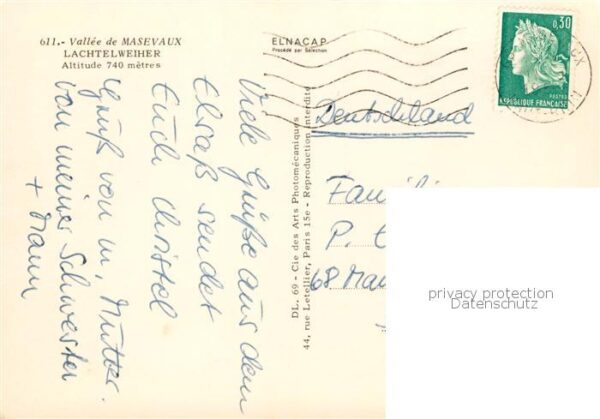 611.- Vallée de MASEVAUX
LACHTELWEIHER
Altitude 740 mètres
ELNACAP
Procédé par Sélection
0,30
POSTES
RÉPUBLIQUE FRANÇAISE
Viele Grüße aus dem
Elsaß sendet
Euch Christel
Gruß von m. Mutter.
von meiner Schwester
+ Mann
DL. 69 - Cie des Arts Photomécaniques
44, rue Letellier, Paris 15e - Reproduction interdite
Deutschland
Famili
P.
68 Man
privacy protection
Datenschutz